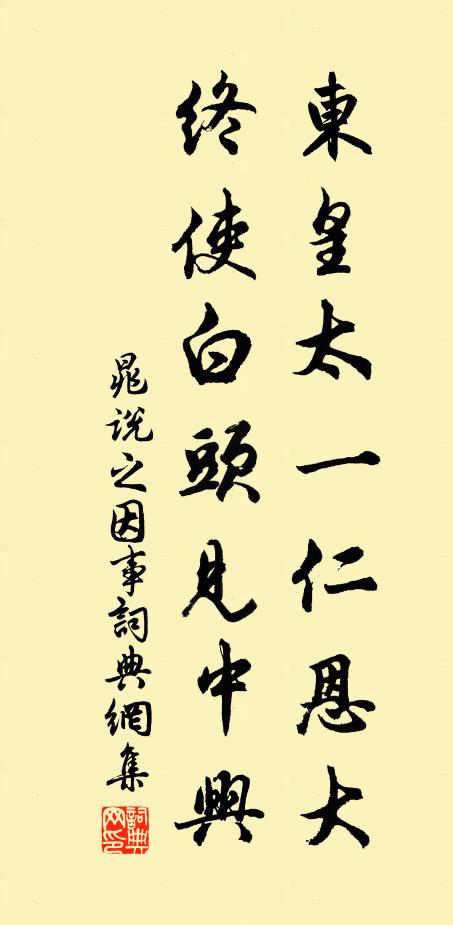 東皇太一仁恩大
終使白頭見中興
晁說之因事詞典網集
詞典網印